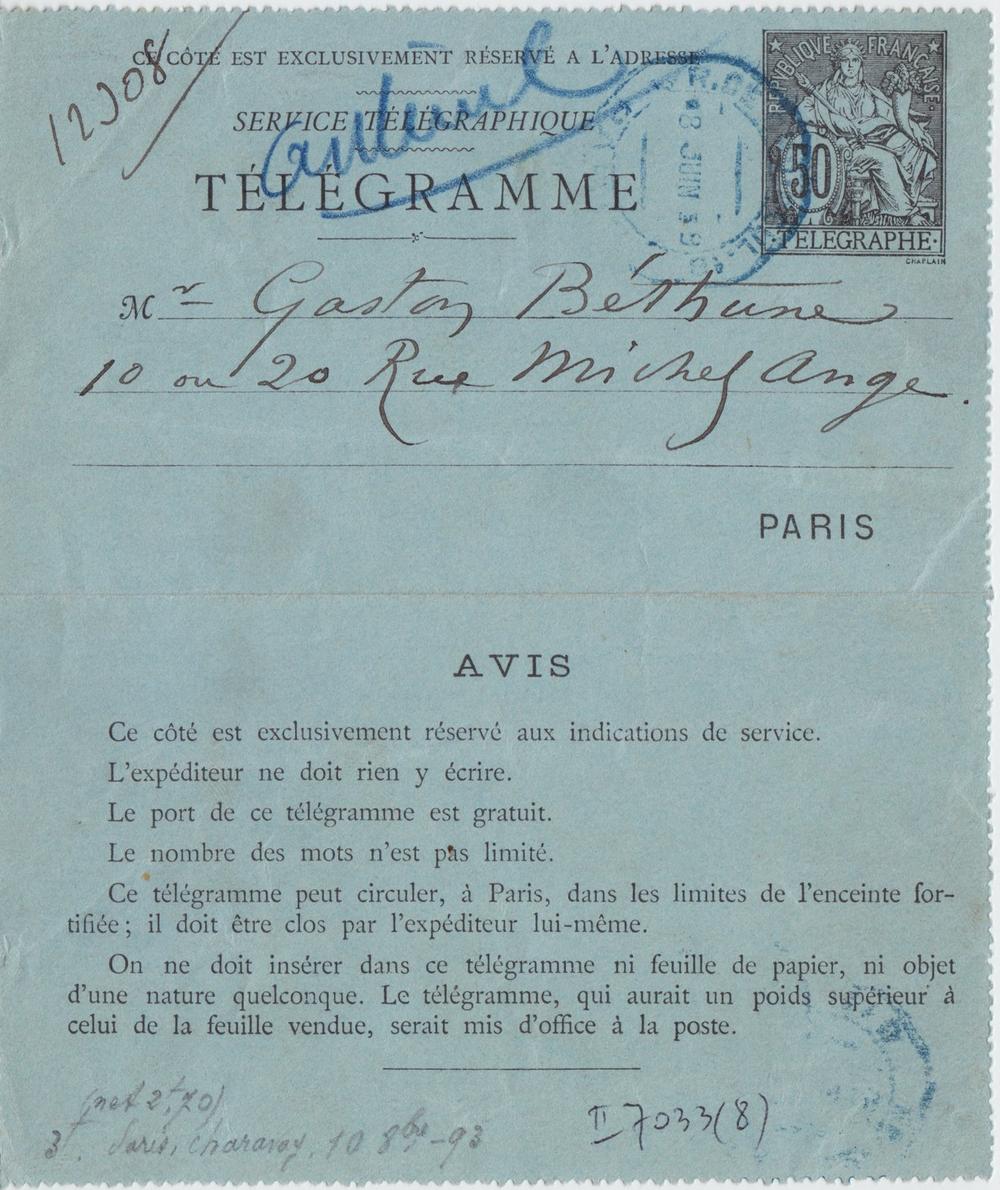 CE CÔTÉ EST EXCLUSIVEMENT RÉSERVÉ A L'ADRESSE
SERVICE TÉLÉGRAPHIQUE
TÉLÉGRAMME
RÉPUBLIQUE FRANÇAISE
50
TELEGRAPHE
CHAPLAIN
JUIN
Mr Gaston Béthune
10 ou 20 Rue Michel Ange.
PARIS
AVIS
Ce côté est exclusivement réservé aux indications de service.
L'expéditeur ne doit rien y écrire.
Le port de ce télégramme est gratuit.
Le nombre des mots n'est pas limité.
Ce télégramme peut circuler, à Paris, dans les limites de l'enceinte for-
tifiée; il doit être clos par l'expéditeur lui-même.
On ne doit insérer dans ce télégramme ni feuille de papier, ni objet
d'une nature quelconque. Le télégramme, qui aurait un poids supérieur à
celui de la feuille vendue, serait mis d'office à la poste.
(net 2f,70)
3f. Paris, Charavay, 10 8bre-93
II 7033(8)